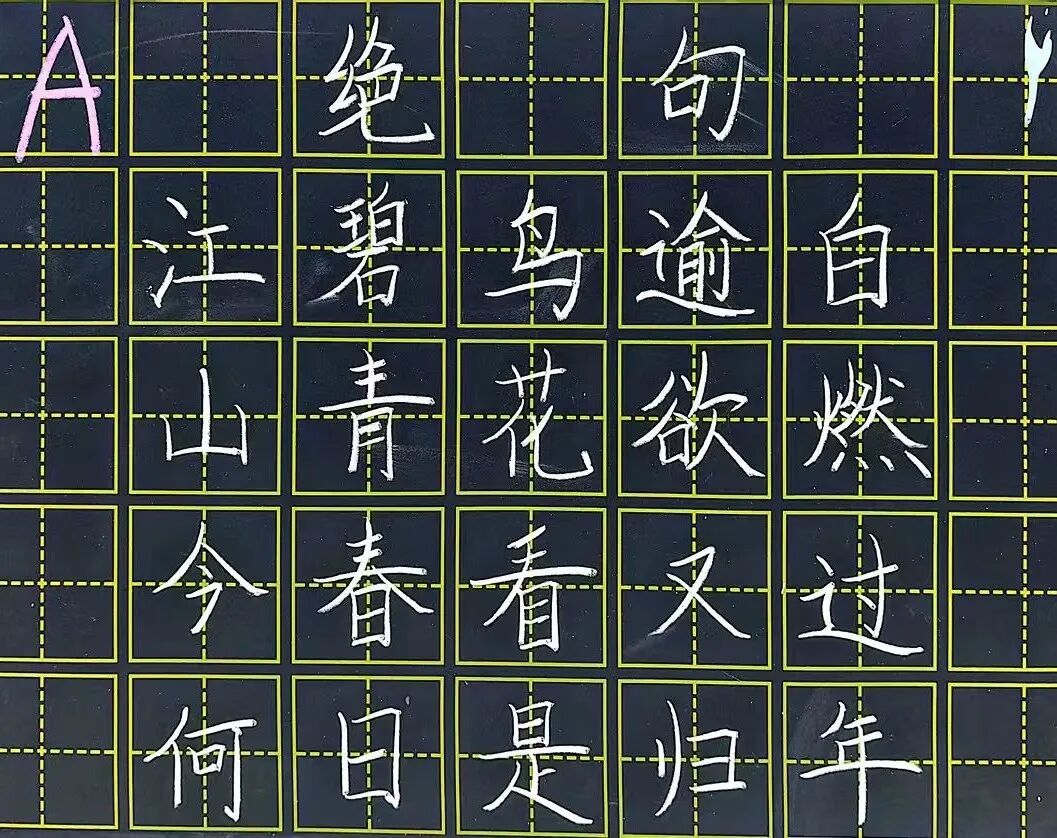 A 绝句
江碧鸟逾白
山青花欲燃
今春看又过
何日是归年